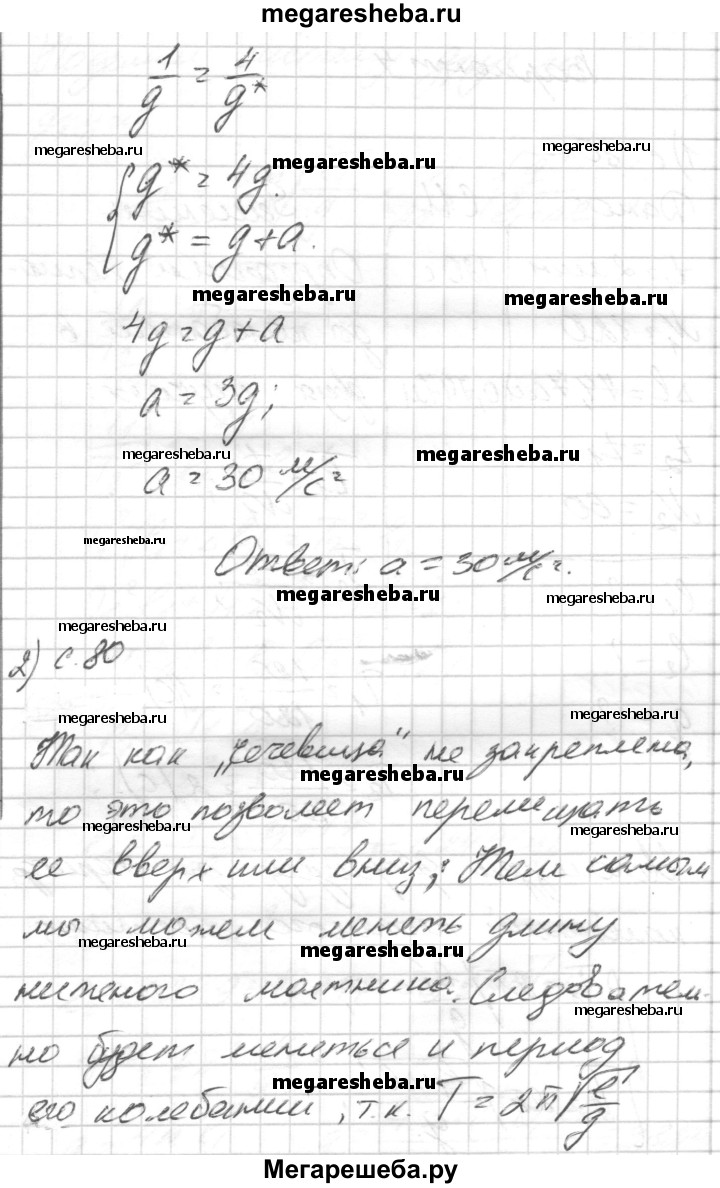 megaresheba.ru
1/g = 4/g*
megaresheba.ru
megaresheba.ru
megaresheba.ru
{ g* = 4g.
g* = g+a.
megaresheba.ru
megaresheba.ru
4g = g+a
a = 3g;
megaresheba.ru
megaresheba.ru
a = 30 м/с²
megaresheba.ru
Ответ: a = 30 м/с².
megaresheba.ru
megaresheba.ru
megaresheba.ru
2) с. 80
megaresheba.ru
megaresheba.ru
Так как „чечевица“ не закреплена,
megaresheba.ru
то это позволяет перемещать
megaresheba.ru
megaresheba.ru
ее вверх или вниз; Тем самым
мы можем менять длину
megaresheba.ru
megaresheba.ru
нитяного маятника. Следователь-
megaresheba.ru
но будет меняться и период
megaresheba.ru
его колебаний, т.к. T = 2π√l/g
Мегарешеба.ру